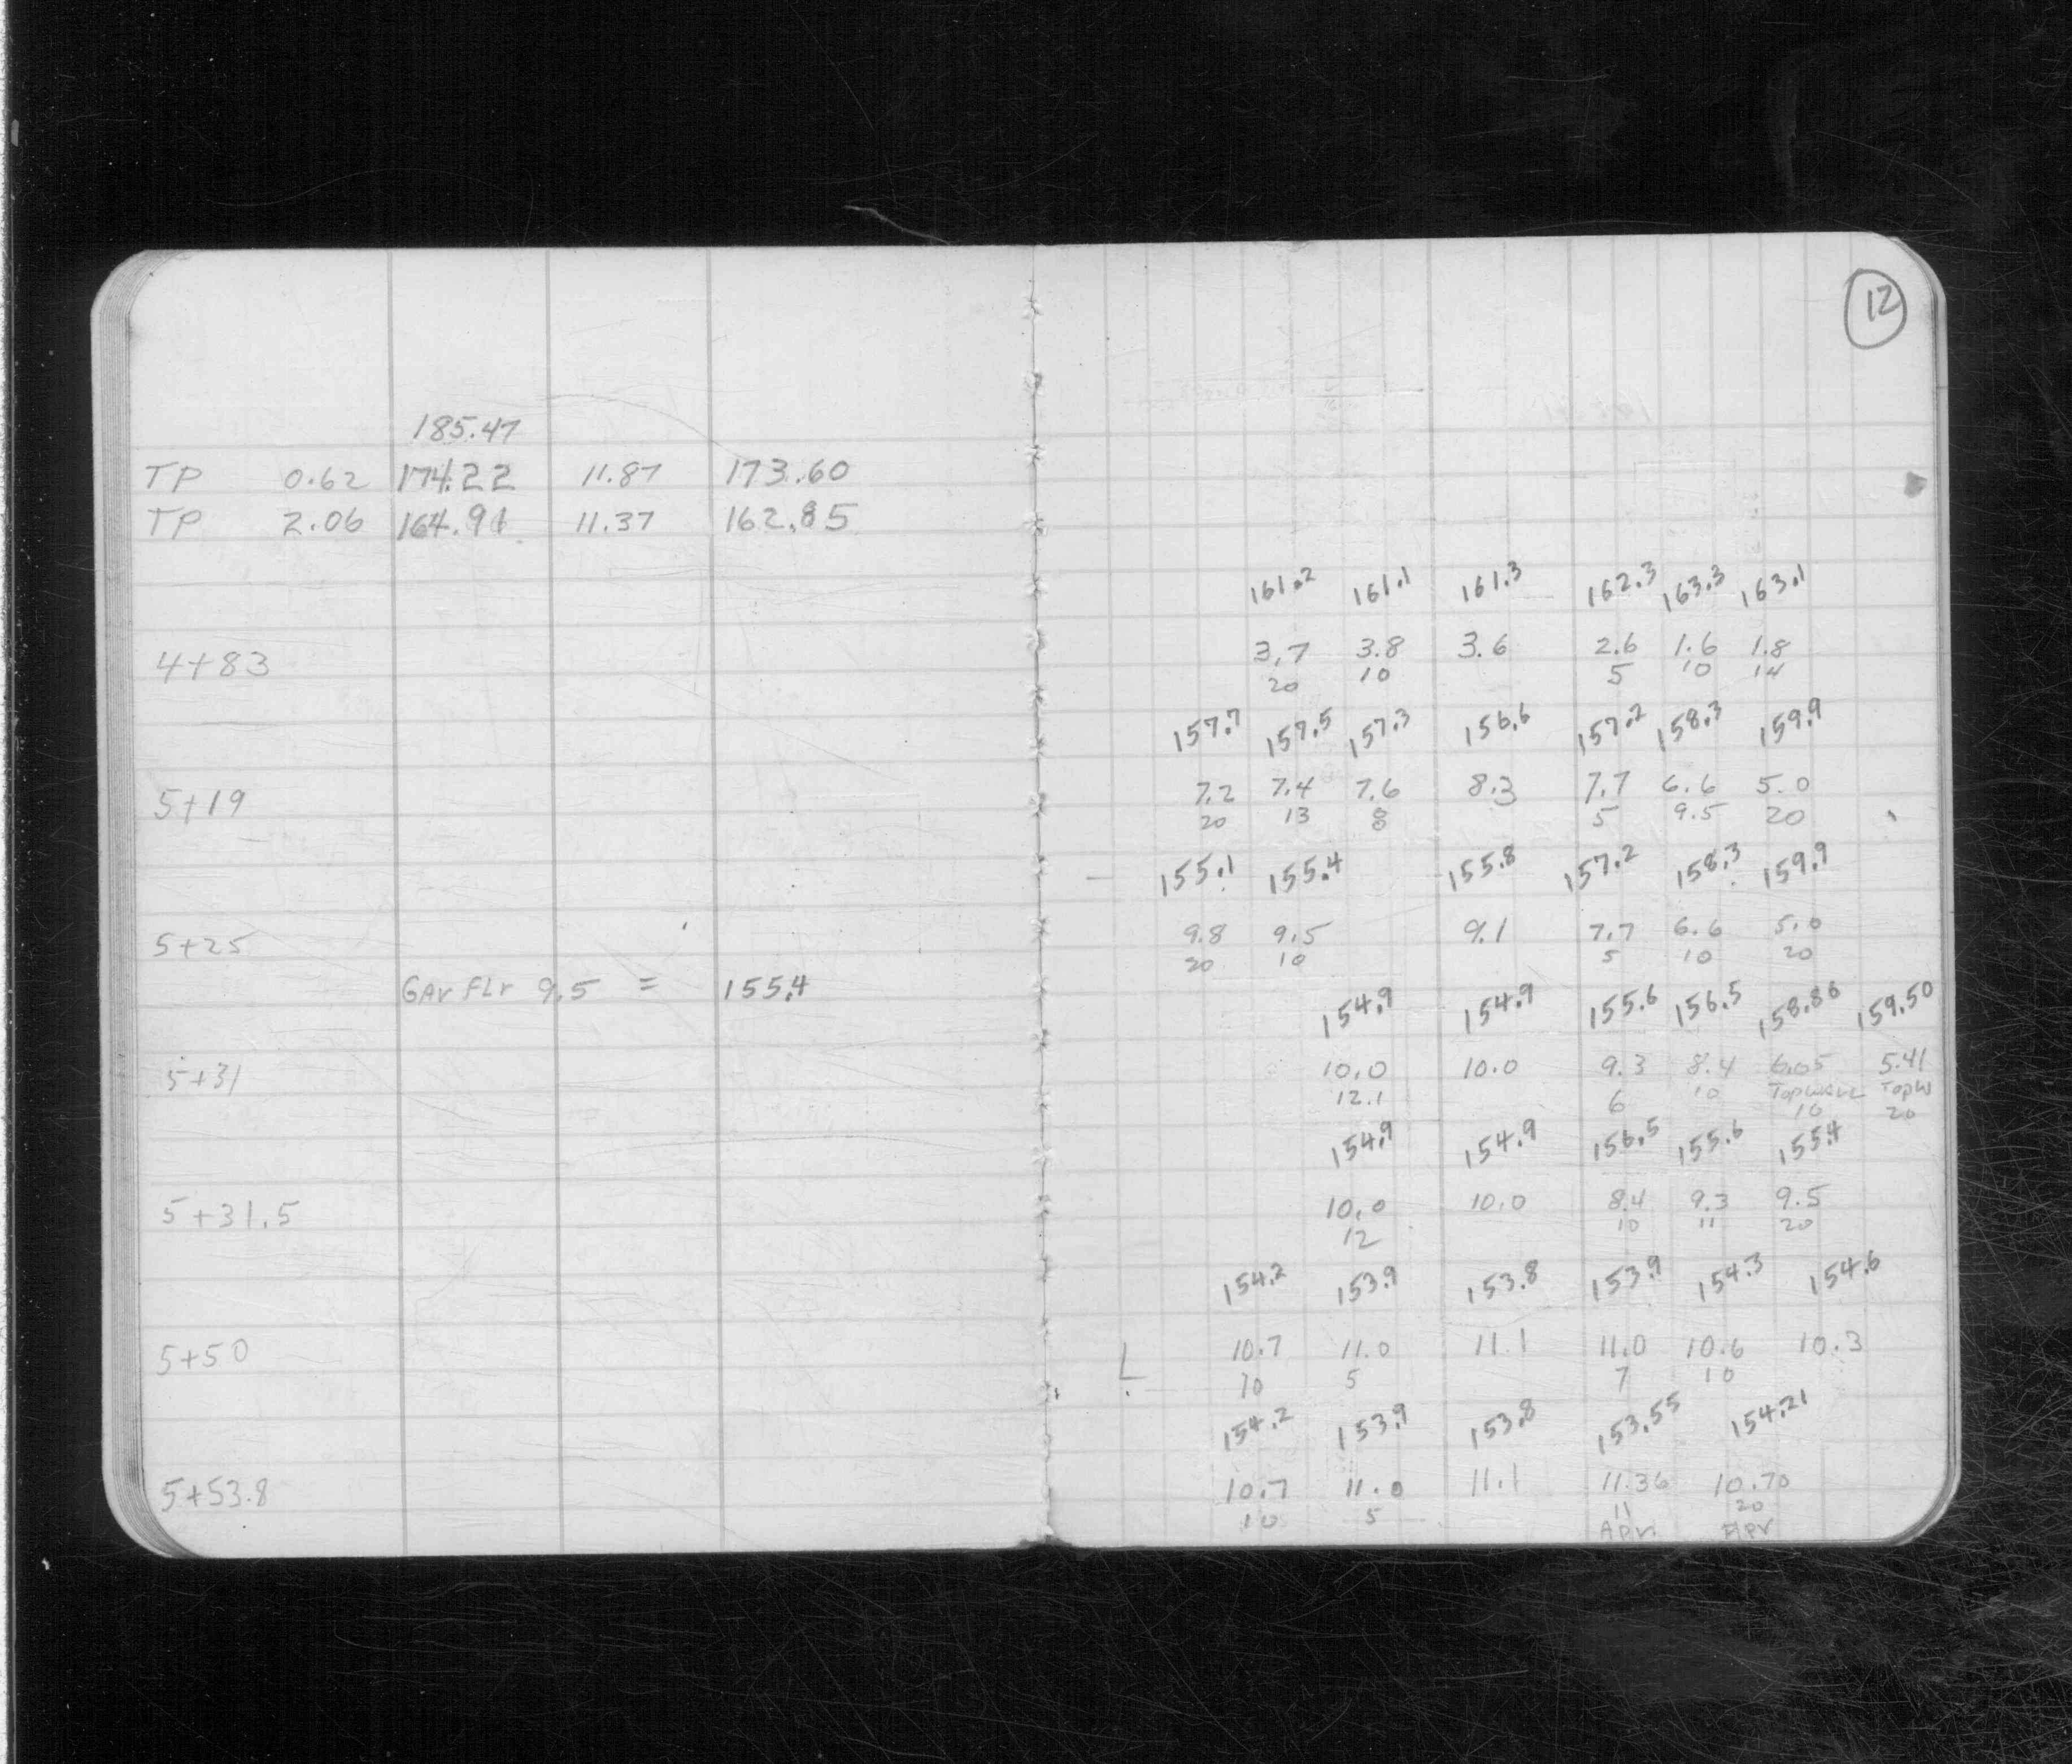 12
185.47
TP 0.62 174.22 11.87 173.60
TP 2.06 164.91 11.37 162.85
161.2 161.1 161.3 162.3 163.3 163.1
4+83 3.7 3.8 3.6 2.6 1.6 1.8
20 10 5 10 14
157.7 157.5 157.3 156.6 157.2 158.3 159.9
5+19 7.2 7.4 7.6 8.3 7.7 6.6 5.0
20 13 8 5 9.5 20
155.1 155.4 155.8 157.2 158.3 159.9
5+25 9.8 9.5 9.1 7.7 6.6 5.0
20 10 5 10 20
GAr FLr 9.5 = 155.4
154.9 154.9 155.6 156.5 158.86 159.50
5+31 10.0 10.0 9.3 8.4 6.05 5.41
12.1 6 10 Top WALL TopW
16 20
154.9 154.9 156.5 155.6 155.4
5+31.5 10.0 10.0 8.4 9.3 9.5
12 10 11 20
154.2 153.9 153.8 153.9 154.3 154.6
5+50 L 10.7 11.0 11.1 11.0 10.6 10.3
10 5 7 10
154.2 153.9 153.8 153.55 154.21
5+53.8 10.7 11.0 11.1 11.36 10.70
10 5 11 20
Apr Apr